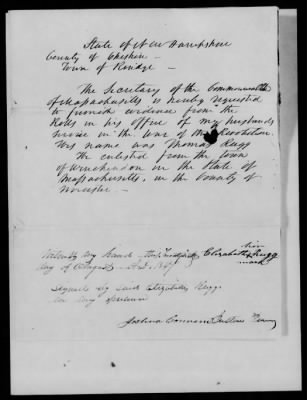 State of New Hampshire
County of Cheshire -
Town of Rindge -
The Secretary of the Commonwealth
of Massachusetts is hereby requested
to furnish evidence from the
Rolls in his office of my husbands
service in the War of the Revolution.
His name was Thomas Rugg
He enlisted from the town
of Winchendon in the State of
Massachusetts, in the County of
Worcester -
Witness my hand this
day of August A.D.
Elizabeth Rugg
her
mark
Signed by said Elizabeth Rugg
in my presence
Joshua Converse Justice Peace